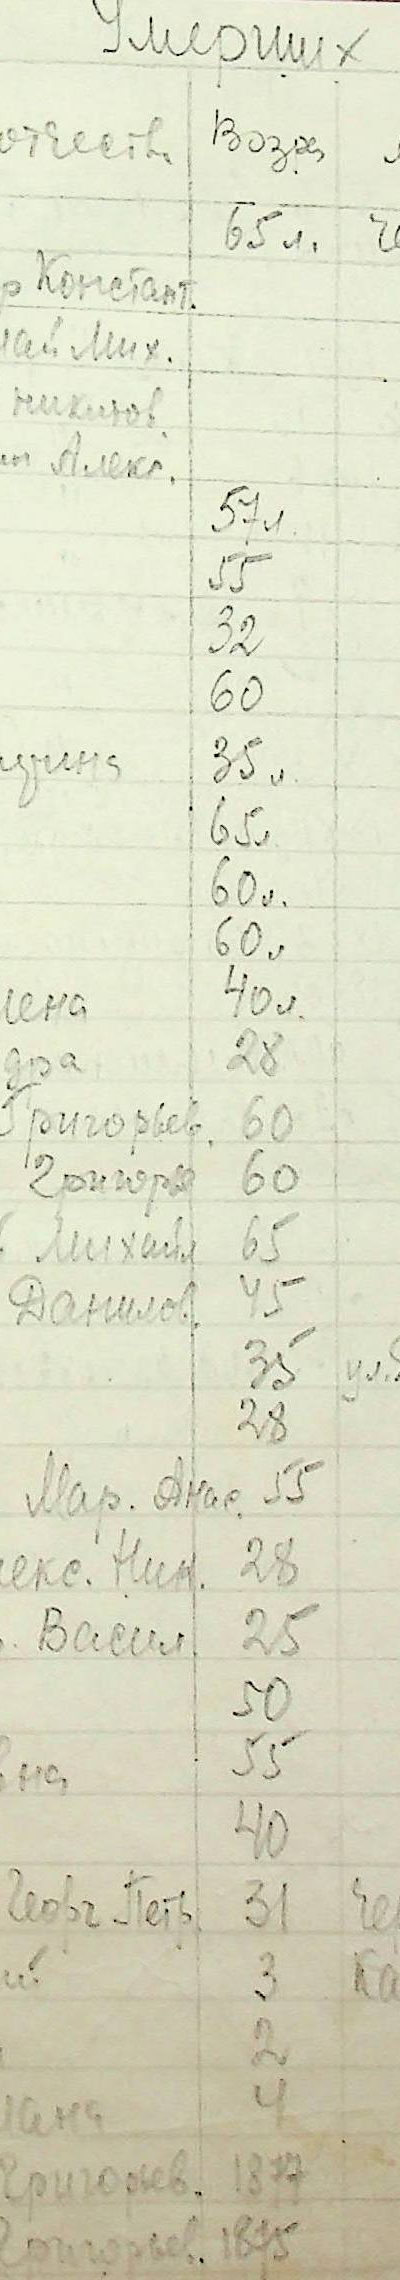 Умерших
отчеств. Возра
65 л. че
р Констант.
лай Мих.
никитов.
ин Алекс.
57 л.
55
32
60
щина 35 л.
65 л
60 л.
60 л
лена 40 л.
дра 28
Григорьев. 60
Григорье 60
Михаил 65
Данилов. 45
35 ул.
28
Мар. Анас. 55
лекс. Ник. 28
Васил. 25
50
вна 55
40
Георг. Петр. 31 чер
ий 3 Ка
2
лана 4
Григорьев. 1877
Григорьев. 1875